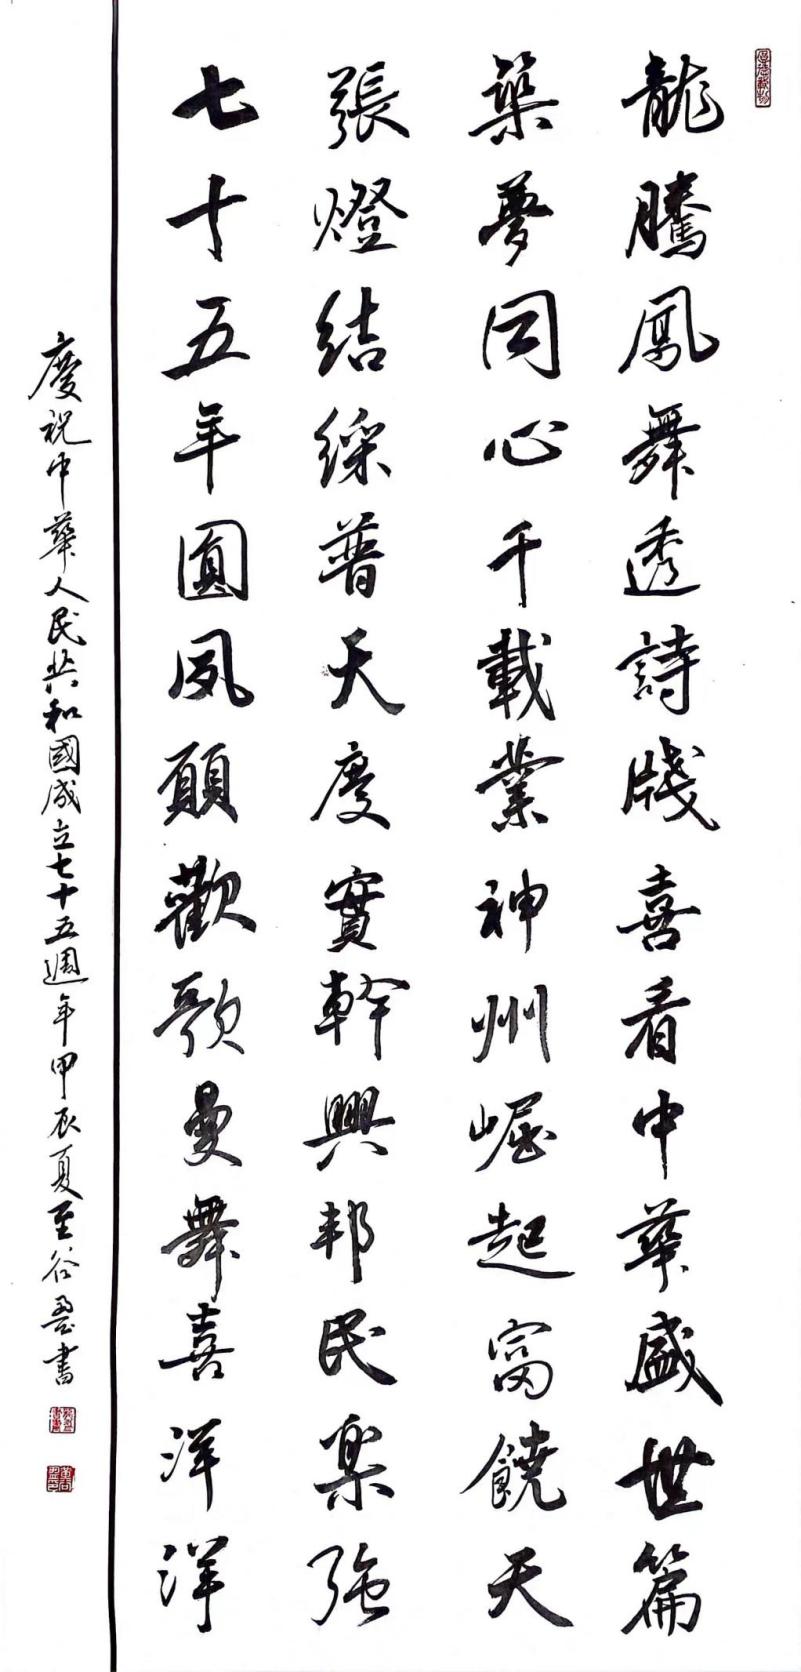 厚德載物
龍騰鳳舞透詩牋喜看中華盛世篇
築夢同心千載業神州崛起富饒天
張燈結綵普天慶實幹興邦民樂強
七十五年圓夙願歡歌曼舞喜洋洋
慶祝中華人民共和國成立七十五週年甲辰夏至谷盈書